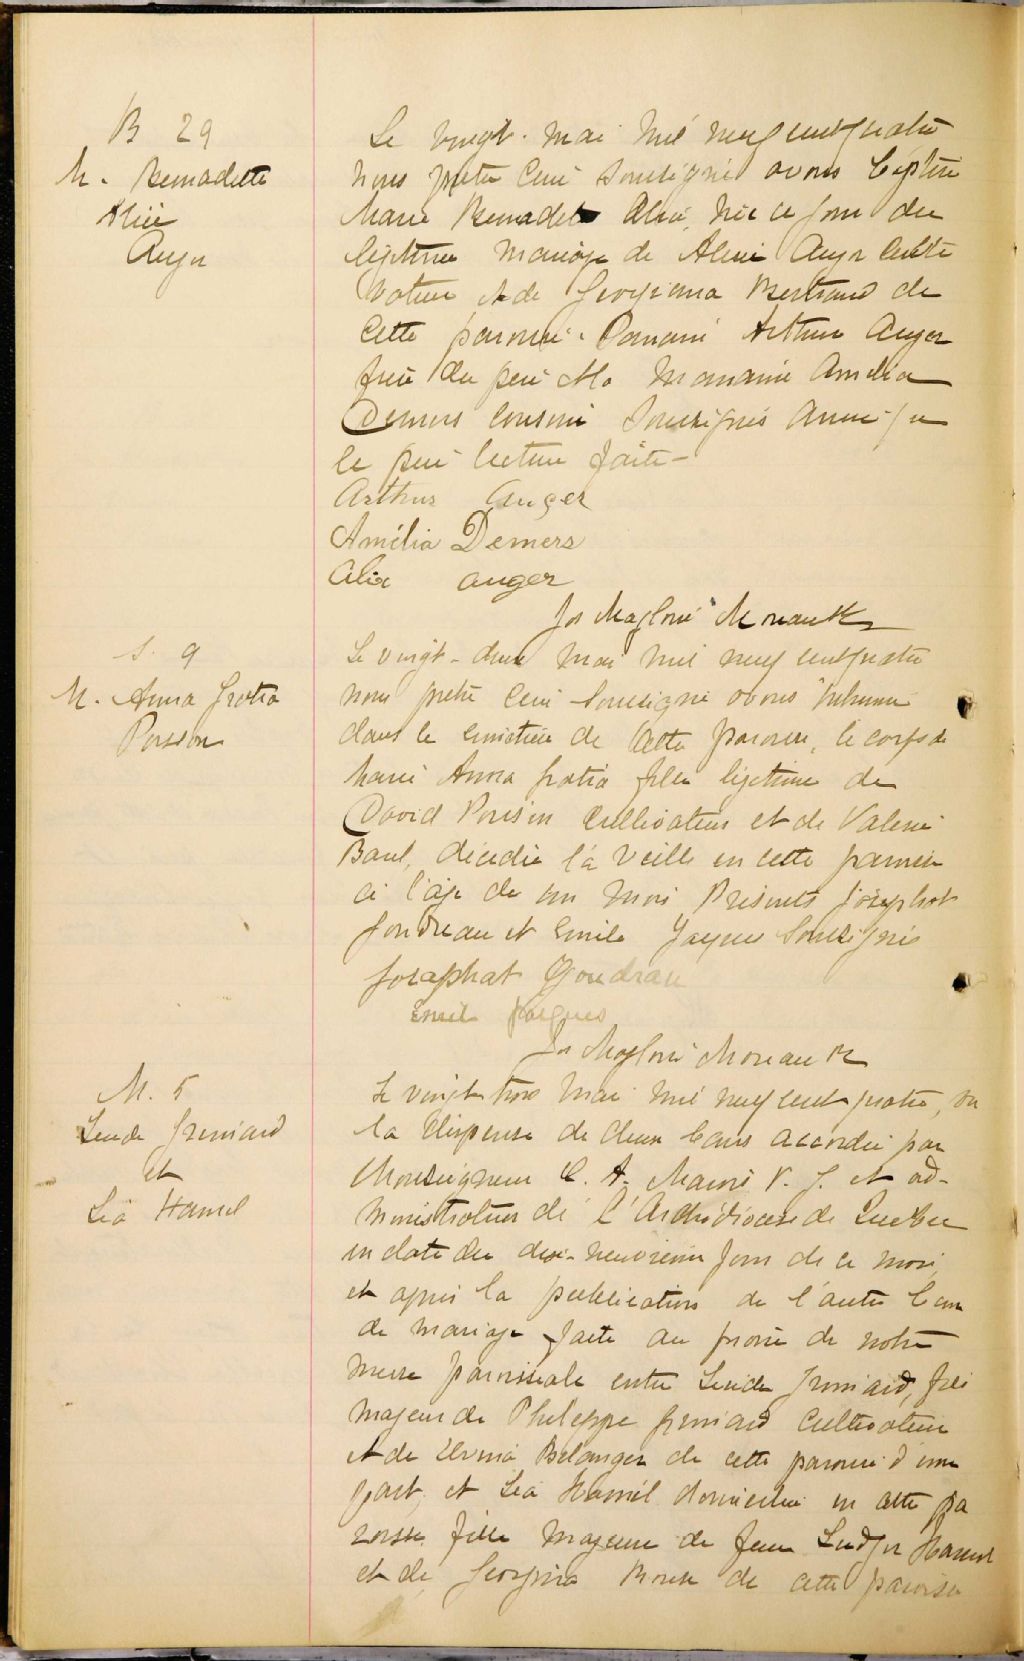 B 29
M. Bernadette
Alice
Auger
Le vingt mai mil neuf cent quatre
nous prêtre curé soussigné avons baptisé
Marie Bernadette Alice, née ce jour du
légitime mariage de Auger culti
vateur et de Georgiana Bertrand de
cette paroisse. Parrain Arthur Auger
frère du père Marraine Amélia
Demers cousine soussignés avec
le père lecture faite -
Arthur Auger
Amélia Demers
Alix Auger
Jos Magloire Moreau Ptre
S. 9
M. Anna Gratia
Poisson
Le vingt-deux mai mil neuf cent quatre
nous prêtre curé soussigné avons inhumé
dans le cimetière de cette paroisse, le corps de
Marie Anna Gratia fille légitime de
David Poisson cultivateur et de Valérie
Baril, décédée la veille en cette paroisse
à l'âge de un mois Présents Josaphat
Gondreau et Emile Jacques soussignés
Josaphat Gondrau
Emile Jacques
Jos Magloire Moreau Ptre
M. 5
Grenard
et
Léa Hamel
Le vingt trois mai mil neuf cent quatre, vu
la dispense de deux bans accordée par
Monseigneur C. A. Marois V. G. et ad-
ministrateur de l'Archidiocèse de Québec
en date du dix-neuvième jour de ce mois,
et après la publication de l'autre ban
de mariage faite au prône de notre
messe paroissiale entre Grenard, fils
majeur de Philippe Grenard cultivateur
et de Bélanger de cette paroisse d'une
part, et Léa Hamel domiciliée en cette pa
roisse fille majeure de feu Ludger Hamel
et de Georgina de cette paroisse